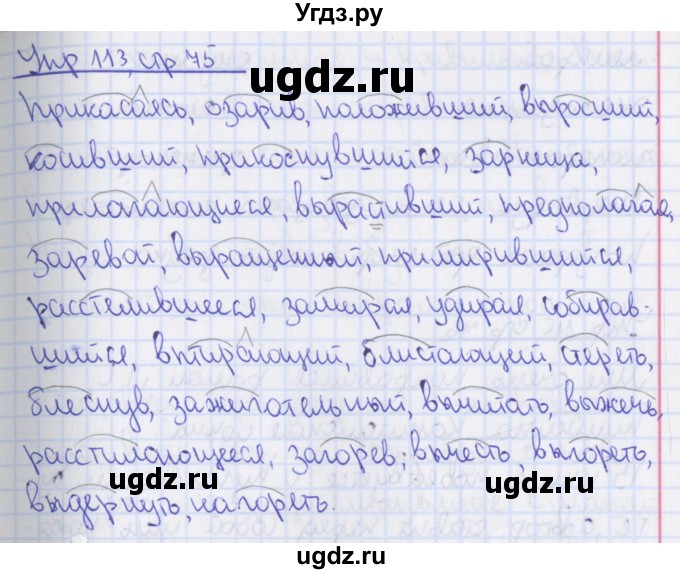 Угдз.ру
Упр 113, стр 75
ugdz.ru
Прикасаясь, озарив, положивший, выросший,
косивший, прикоснувшийся, зарница,
прилагающиеся, вырастивший, предполагая,
заревой, выращенный, примирившийся,
расстелившееся, замирая, удирая, собирав-
шийся, втирающий, блистающий, стереть,
ugdz.ru
блеснув, зажигательный, вычитать, выжечь,
расстилающееся, загорев; вычесть, выгореть,
ugdz.ru ugdz.ru
выдернуть, нагореть.
ugdz.ru